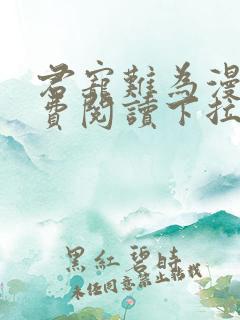 君寵難為漫
費閱讀下拉
黑紅碧時
未經同意禁止轉載